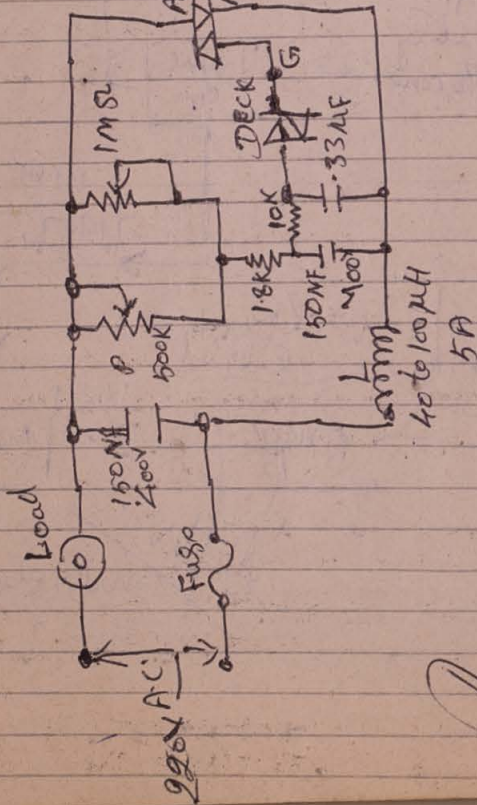 220V A.C
Load
Fuse
150NF
400V
P
500K
1MΩ
1.8K
10K
150NF
400V
DECK
G
.33MF
A
L
40 to 100μH
5A